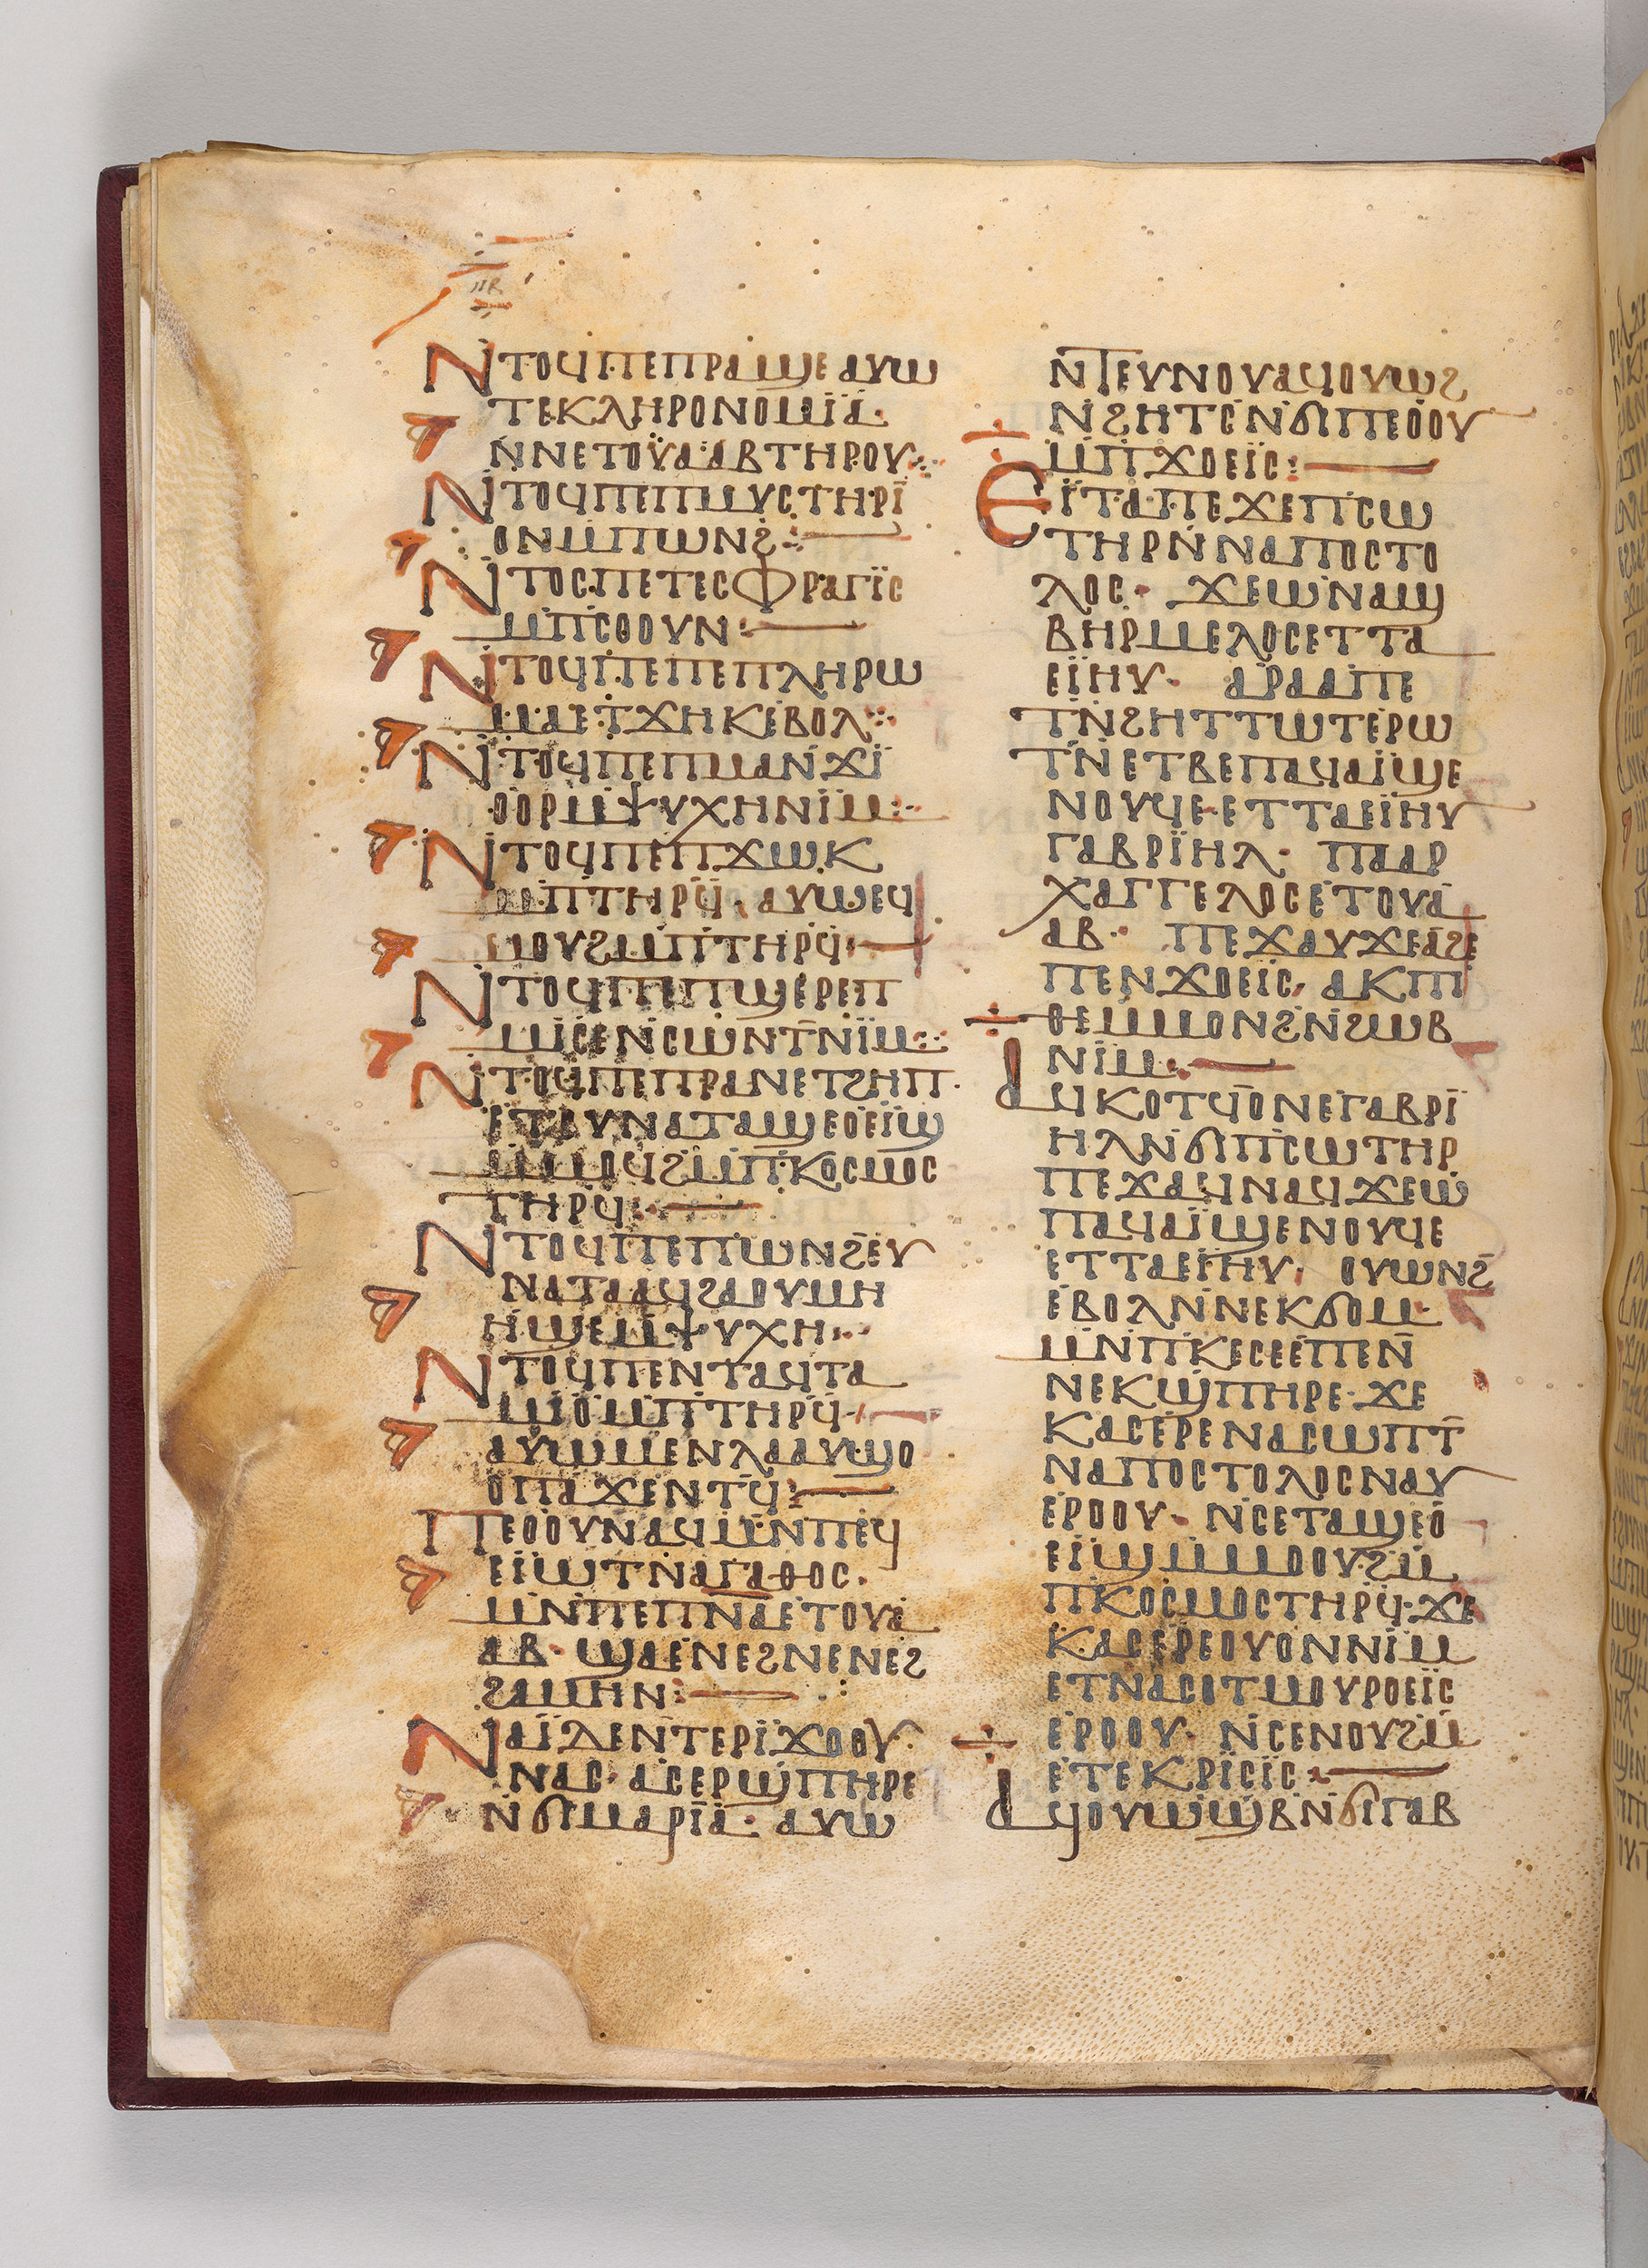 ⲡⲃ
Ⲛⲧⲟϥⲡⲉⲡⲣⲁϣⲉ ⲁⲩⲱ
ⲧⲉⲕⲗⲏⲣⲟⲛⲟⲙⲓ̈ⲁ·
ⲛ̇ⲛⲉⲧⲟⲩ̈ⲁⲁⲃ ⲧⲏⲣⲟⲩ·:·
Ⲛⲧⲟϥⲡⲉⲡⲙⲩⲥⲧⲏⲣⲓ̈
ⲟⲛⲙⲡⲱⲛϩ:—
Ⲛⲧⲟⲥⲡⲉⲧⲉⲥⲫⲣⲁⲅⲓ̈ⲥ
ⲙ̇ⲡ̇ⲥⲟⲟⲩⲛ:—
Ⲛⲧⲟϥⲡⲉⲡⲉⲡⲗⲏⲣⲱ
ⲙⲁⲉⲧϫⲏⲕⲉ̇ⲃⲟⲗ:·
Ⲛⲧⲟϥⲡⲉⲡⲙⲁⲛ̇ϫⲓ̈
ϭⲟⲣⲙⲯⲩⲭⲏⲛⲓ̈ⲙ:·
Ⲛⲧⲟϥⲡⲉⲡϫⲱⲕ
ⲙ̇ⲡⲧⲏⲣϥ̇· ⲁⲩⲱⲉϥ
ⲙⲟⲩϩⲙ̇ⲡⲧⲏⲣϥ:—
Ⲛⲧⲟϥⲡⲉⲡϣⲉⲣⲉⲡ
ⲙ̇ⲓⲥⲉⲛ̇ⲥⲱⲛⲧⲛⲓ̈ⲙ:·
Ⲛⲧⲟϥⲡⲉⲡⲣⲁⲛⲉⲧϩⲏⲡ·
ⲉⲧⲟⲩⲛⲁⲧⲁϣⲉⲟⲉⲓ̈ϣ
ⲙ̇ⲙⲟϥϩⲙ̇ⲡ̇ⲕⲟⲥⲙⲟⲥ
ⲧⲏⲣϥ:—
Ⲛⲧⲟϥⲡⲉⲡⲱⲛϩⲉ̇ⲩ
ⲛⲁⲧⲁⲁϥϩⲁⲟⲩⲙⲏ
ⲏ̇ϣⲉⲙ̇ⲯⲩⲭⲏ·:·
Ⲛⲧⲟϥⲡⲉⲛⲧⲁϥⲧⲁ
ⲙⲓ̇ⲟ̇ⲙ̇ⲡ̇ⲧⲏⲣϥ̇·—
ⲁⲩⲱⲙⲉⲛⲗⲁⲁⲩϣⲟ
ⲟⲡⲁ̇ϫⲉⲛⲧϥ̇:—
Ⲡⲉⲟⲟⲩⲛⲁϥⲙ̇ⲛⲡⲉϥ
ⲉⲓ̈ⲱⲧⲛ̇ⲁⲅⲁⲑⲟⲥ·
ⲙ̇ⲛ̇ⲡⲉⲡⲛ̅ⲁⲉⲧⲟⲩⲁ
ⲁⲃ· ϣⲁⲉ̇ⲛⲉϩⲛⲉⲛⲉϩ
ϩⲁⲙⲏⲛ:—
Ⲛⲁⲓ̈ⲇⲉⲛ̇ⲧⲉⲣⲓ̈ϫⲟⲟⲩ·
ⲛⲁⲥ· ⲁⲥⲉⲣϣⲡⲏⲣⲉ
ⲛ̇ϭⲓⲙⲁⲣⲓ̈ⲁ· ⲁⲩⲱ
ⲛⲧⲉⲩⲛⲟⲩⲁϥⲟⲩⲱϩ
ⲛ̇ϩⲏⲧⲥ̇ⲛ̇ϭⲓⲡⲉⲟ̇ⲟⲩ
ⲙ̇ⲡ̇ϫⲟⲉⲓ̈ⲥ:—
Ⲉⲓ̈ⲧⲁⲡⲉϫⲉⲡⲥⲱ
ⲧⲏⲣⲛ̇ⲛⲁⲡⲟⲥⲧⲟ
ⲗⲟⲥ· ϫⲉⲱ̇ⲛⲁϣ
ⲃⲏⲣⲙⲉⲗⲟⲥⲉⲧⲧⲁ
ⲉⲓ̈ⲏⲩ· ⲁⲣⲁⲁⲡⲉ
ⲧⲛ̇ϩⲏⲧⲧⲱⲧⲉ̇ⲣⲱ
ⲧⲛ̇ⲉⲧⲃⲉⲡⲁϥⲁⲓ̈ϣⲉ
ⲛⲟⲩϥⲉ·ⲉⲧⲧⲁⲉⲓ̈ⲏⲩ
ⲅⲁⲃⲣⲓ̈ⲏⲗ· ⲡⲁⲁⲣ
ⲭⲁⲅⲅⲉⲗⲟⲥⲉ̇ⲧⲟⲩⲁ
ⲁⲃ· ⲡⲉϫⲁⲩϫⲉⲁϩⲉ
ⲡⲉⲛϫⲟⲉⲓ̈ⲥ· ⲁⲕⲧⲡ
ⲑⲉⲙⲙⲟⲛϩⲛ̇ϩⲱⲃ
ⲛⲓ̈ⲙ:—
Ⲁϥⲕⲟⲧϥ̇ⲟⲛⲉ̇ⲅⲁⲃⲣⲓ̈
ⲏⲗⲛ̇ϭⲓⲡ̇ⲥⲱⲧⲏⲣ
ⲡⲉϫⲁϥⲛⲁϥϫⲉⲱ̇
ⲡⲁϥⲁⲓ̈ϣⲉⲛⲟⲩϥⲉ
ⲉⲧⲧⲁⲉⲓ̈ⲏⲩ· ⲟⲩⲱⲛϩ̇
ⲉ̇ⲃⲟⲗⲛ̇ⲛⲉⲕϭⲟⲙ·
ⲙ̇ⲛ̇ⲡ̇ⲕⲉⲥⲉⲉ̇ⲡⲉⲛ̇
ⲛⲉⲕϣ̇ⲡⲏⲣⲉ· ϫⲉ
ⲕⲁⲥⲉ̇ⲣⲉⲛⲁⲥⲱⲡⲧ̇
ⲛⲁⲡⲟⲥⲧⲟⲗⲟⲥⲛⲁⲩ
ⲉ̇ⲣⲟⲟⲩ· ⲛ̇ⲥⲉⲧⲁϣⲉⲟ̇
ⲉⲓ̈ϣⲙ̇ⲙⲟⲟⲩϩⲙ̇
ⲡ̇ⲕⲟⲥⲙⲟⲥⲧⲏⲣϥ̇·ϫⲉ
ⲕⲁⲥⲉ̇ⲣⲉⲟⲩⲟⲛⲛⲓ̈ⲙ
ⲉⲧⲛⲁⲥⲱⲧⲙⲟⲩⲣⲟⲉⲓ̈ⲥ
ⲉ̇ⲣⲟⲟⲩ· ⲛ̇ⲥⲉⲛⲟⲩϩⲙ̇
ⲉⲧⲉⲕⲣⲓ̈ⲥⲓ̈ⲥ:—
Ⲁϥⲟⲩⲱϣ̇ⲃⲛ̇ϭⲓⲅⲁⲃ